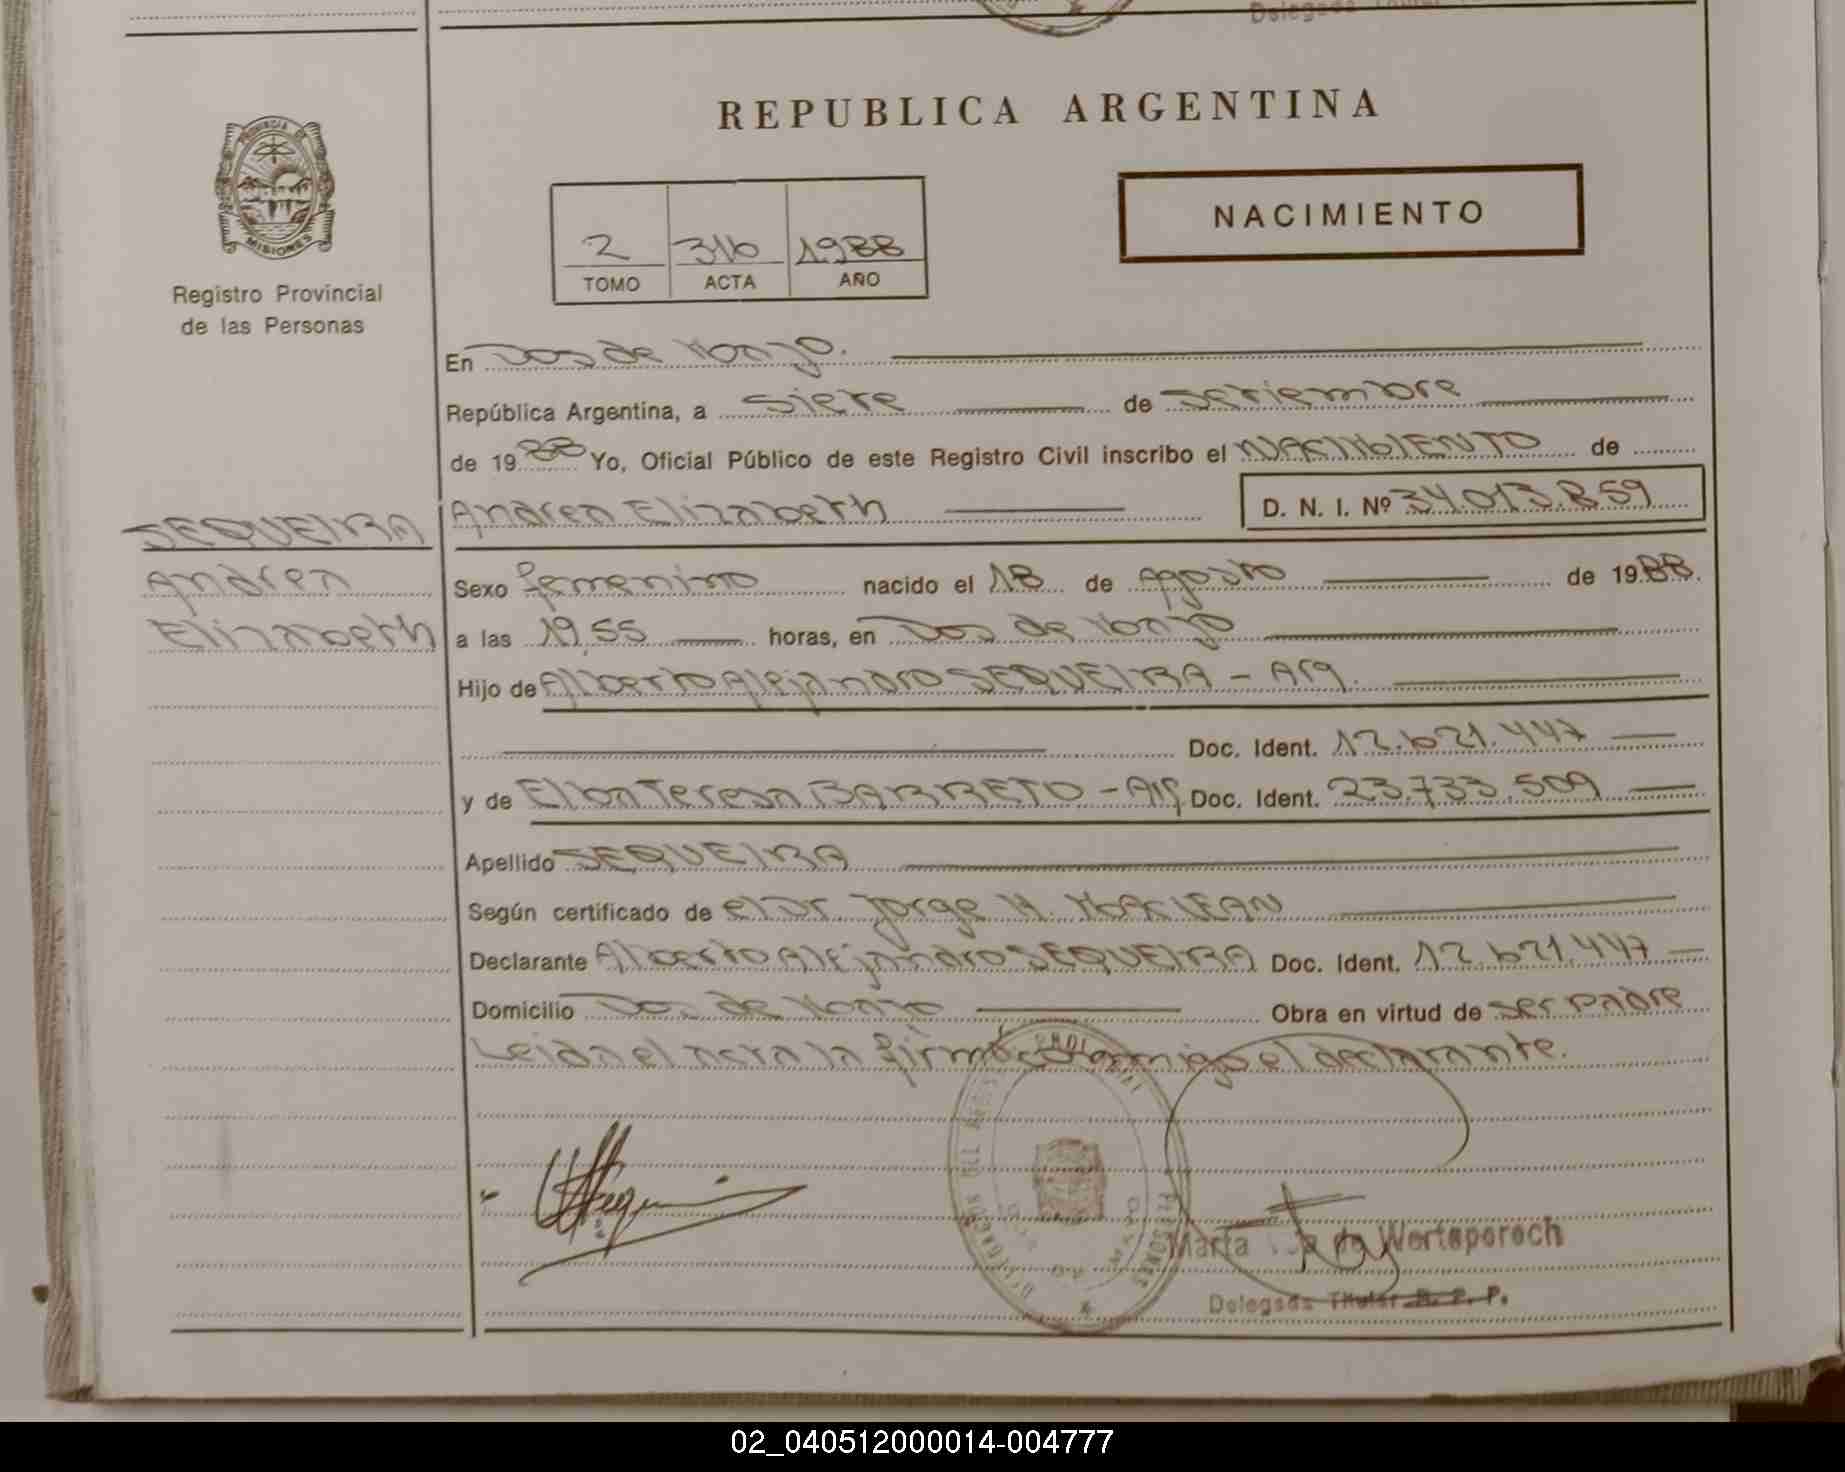 REPUBLICA ARGENTINA
PROVINCIA DE
MISIONES
Registro Provincial
de las Personas
NACIMIENTO
2 316 1988
TOMO ACTA AÑO
En Dos de Mayo.
República Argentina, a siete de setiembre
de 1988 Yo, Oficial Público de este Registro Civil inscribo el NACIMIENTO de
Andrea Elizabeth D. N. I. Nº 34.013.859
SEQUEIRA
Andrea
Elizabeth
Sexo femenino nacido el 18 de Agosto de 1988.
a las 19,55 horas, en Dos de Mayo
Hijo de Alberto Alejandro SEQUEIRA - Arg.
Doc. Ident. 12.621.447
y de Elba Teresa BARRETO - Arg Doc. Ident. 23.733.509
Apellido SEQUEIRA
Según certificado de el Dr. Jorge H. MAC LEAN
Declarante Alberto Alejandro SEQUEIRA Doc. Ident. 12.621.447
Domicilio Dos de Mayo Obra en virtud de ser padre
Leida el acta la firma conmigo el declarante.
Marta de Wertsporoch
Delegada Titular R. P. P.
02_040512000014-004777